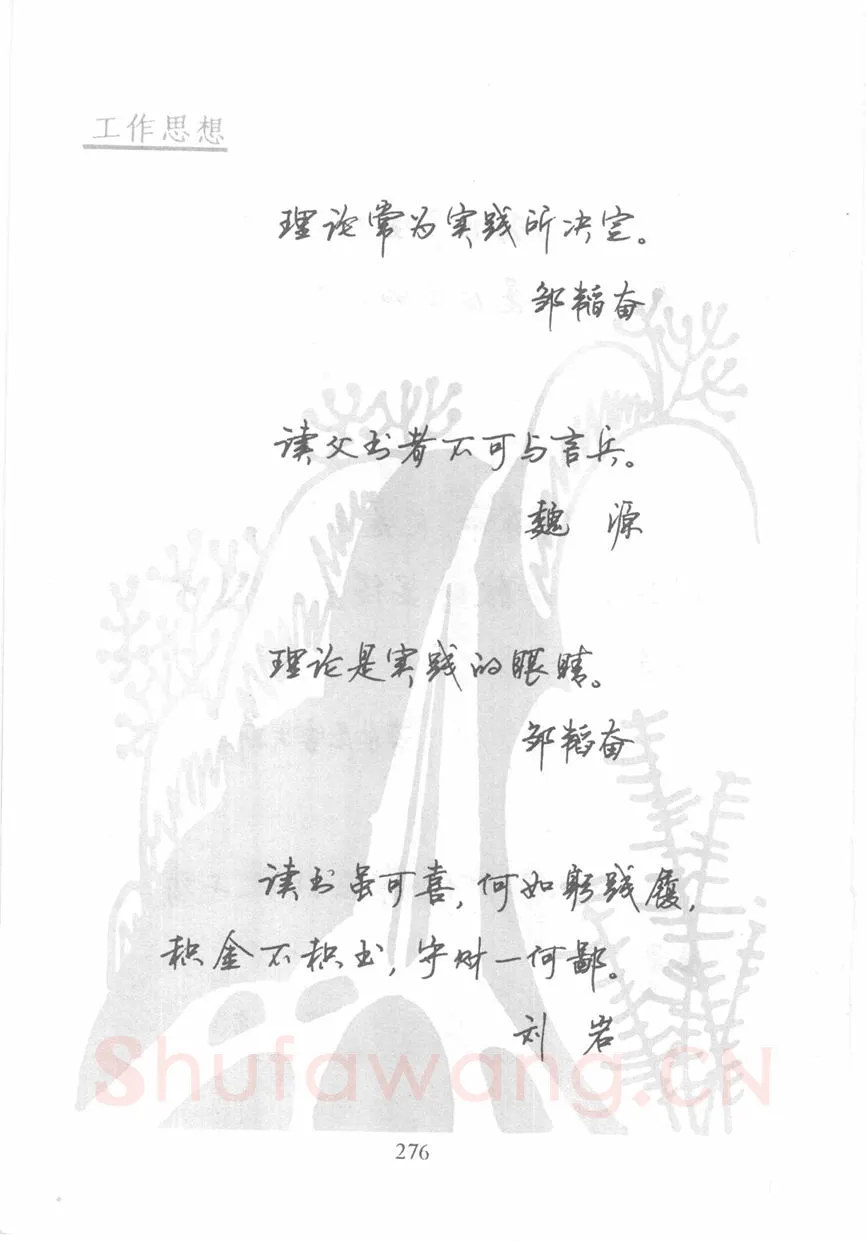 工作思想
理论常为实践所决定。
邹韬奋
读父书者不可与言兵。
魏 源
理论是实践的眼睛。
邹韬奋
读书虽可喜,何如躬践履,
积金不积书,守财一何鄙。
刘 岩
Shufawang.CN
276